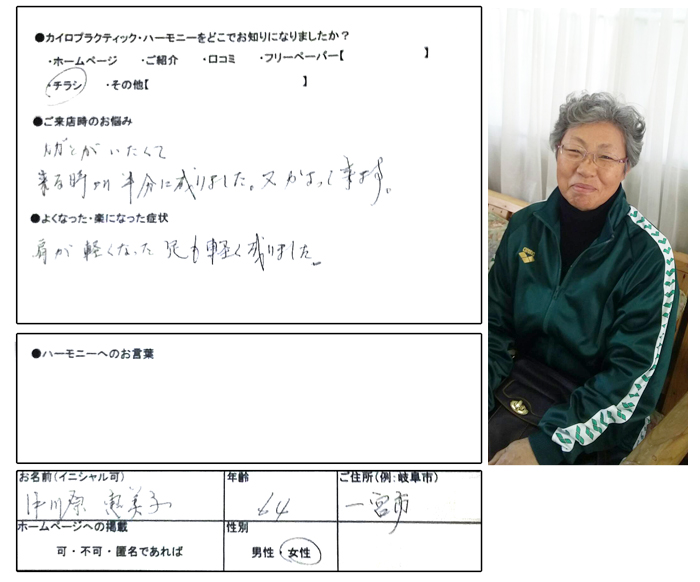 ●カイロプラクティック・ハーモニーをどこでお知りになりましたか？
・ホームページ ・ご紹介 ・口コミ ・フリーペーパー【 】
・チラシ ・その他【 】
●ご来店時のお悩み
がいたくて
来る時が半分に成りました。又かよって来ます。
●よくなった・楽になった症状
肩が軽くなった足も軽く成りました。
●ハーモニーへのお言葉
お名前（イニシャル可） 年齢 ご住所（例：岐阜市）
中川原 恵美子 64 一宮市
ホームページへの掲載 性別
可・不可・匿名であれば 男性・女性